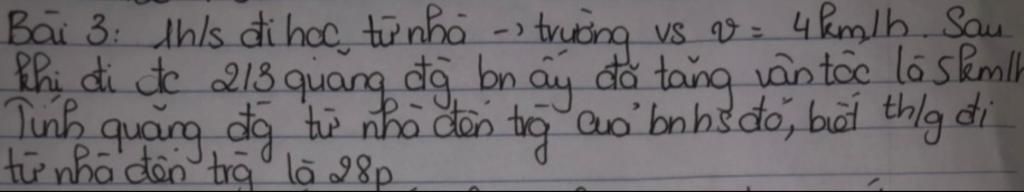 Bài 3: 1h/s đi học từ nhà -> trường vs v = 4km/h. Sau
khi đi đc 2/3 quãng đg bn ấy đã tăng vân tốc là 5km/h
Tính quãng đg từ nhà đến trg của bn hs đó, biết th/g đi
từ nhà đến trg là 28p